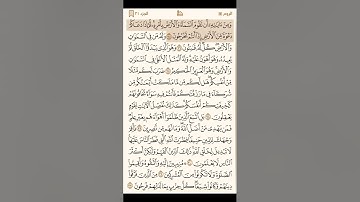 الروم
الجزء ٢١
وَمِنْ ءَايَٰتِهِۦٓ أَن تَقُومَ ٱلسَّمَآءُ وَٱلْأَرْضُ بِأَمْرِهِۦ ثُمَّ إِذَا دَعَاكُمْ
دَعْوَةً مِّنَ ٱلْأَرْضِ إِذَآ أَنتُمْ تَخْرُجُونَ ٢٥ وَلَهُۥ مَن فِى ٱلسَّمَٰوَٰتِ
وَٱلْأَرْضِ كُلٌّ لَّهُۥ قَٰنِتُونَ ٢٦ وَهُوَ ٱلَّذِى يَبْدَؤُا۟ ٱلْخَلْقَ ثُمَّ
يُعِيدُهُۥ وَهُوَ أَهْوَنُ عَلَيْهِ وَلَهُ ٱلْمَثَلُ ٱلْأَعْلَىٰ فِى ٱلسَّمَٰوَٰتِ
وَٱلْأَرْضِ وَهُوَ ٱلْعَزِيزُ ٱلْحَكِيمُ ٢٧ ضَرَبَ لَكُم مَّثَلًا
مِّنْ أَنفُسِكُمْ هَل لَّكُم مِّن مَّا مَلَكَتْ أَيْمَٰنُكُم مِّن
شُرَكَآءَ فِى مَا رَزَقْنَٰكُمْ فَأَنتُمْ فِيهِ سَوَآءٌ تَخَافُونَهُمْ
كَخِيفَتِكُمْ أَنفُسَكُمْ كَذَٰلِكَ نُفَصِّلُ ٱلْءَايَٰتِ لِقَوْمٍ
يَعْقِلُونَ ٢٨ بَلِ ٱتَّبَعَ ٱلَّذِينَ ظَلَمُوٓا۟ أَهْوَآءَهُم بِغَيْرِ عِلْمٍ
فَمَن يَهْدِى مَنْ أَضَلَّ ٱللَّهُ وَمَا لَهُم مِّن نَّٰصِرِينَ ٢٩ فَأَقِمْ
وَجْهَكَ لِلدِّينِ حَنِيفًا فِطْرَتَ ٱللَّهِ ٱلَّتِى فَطَرَ ٱلنَّاسَ عَلَيْهَا
لَا تَبْدِيلَ لِخَلْقِ ٱللَّهِ ذَٰلِكَ ٱلدِّينُ ٱلْقَيِّمُ وَلَٰكِنَّ أَكْثَرَ
ٱلنَّاسِ لَا يَعْلَمُونَ ٣٠ مُنِيبِينَ إِلَيْهِ وَٱتَّقُوهُ وَأَقِيمُوا۟
ٱلصَّلَوٰةَ وَلَا تَكُونُوا۟ مِنَ ٱلْمُشْرِكِينَ ٣١ مِنَ ٱلَّذِينَ فَرَّقُوا۟
دِينَهُمْ وَكَانُوا۟ شِيَعًا كُلُّ حِزْبٍۭ بِمَا لَدَيْهِمْ فَرِحُونَ ٣٢